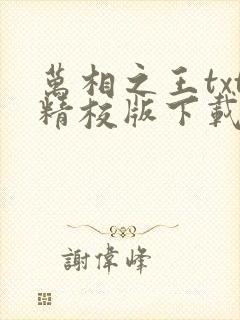 萬相之王txt
精校版下載
謝偉峰